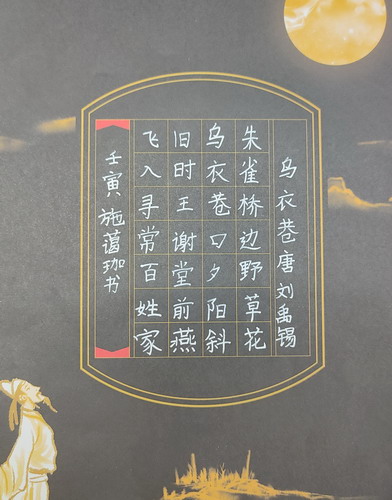 乌衣巷唐刘禹锡
朱雀桥边野草花
乌衣巷口夕阳斜
旧时王谢堂前燕
飞入寻常百姓家
壬寅施蔼珈书